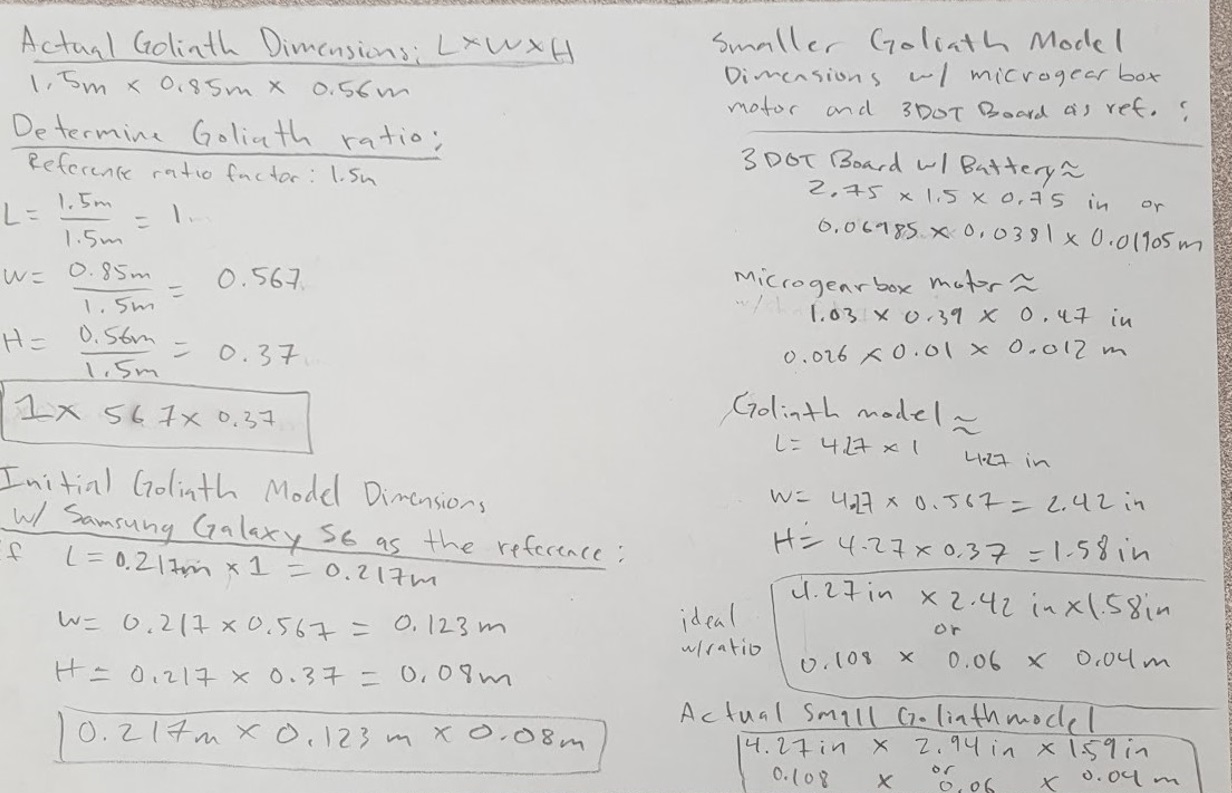 Actual Goliath Dimensions: L×W×H
1.5m × 0.85m × 0.56m
Determine Goliath ratio:
Reference ratio factor: 1.5m
L = 1.5m / 1.5m = 1.
W = 0.85m / 1.5m = 0.567
H = 0.56m / 1.5m = 0.37
1 × 567 × 0.37
Initial Goliath Model Dimensions
w/ Samsung Galaxy S6 as the reference:
if L = 0.217m × 1 = 0.217m
W = 0.217 × 0.567 = 0.123 m
H = 0.217 × 0.37 = 0.08m
0.217m × 0.123 m × 0.08m
Smaller Goliath Model
Dimensions w/ microgear box
motor and 3DOT Board as ref. :
3DOT Board w/ Battery ≈
2.75 × 1.5 × 0.75 in or
0.06985 × 0.0381 × 0.01905 m
Microgearbox motor ≈
1.03 × 0.39 × 0.47 in
0.026 × 0.01 × 0.012 m
Goliath model ≈
L = 4.27 × 1 4.27 in
W = 4.27 × 0.567 = 2.42 in
H = 4.27 × 0.37 = 1.58 in
ideal
w/ratio
4.27 in × 2.42 in × 1.58 in
or
0.108 × 0.06 × 0.04 m
Actual Small Goliath model
4.27 in × 2.94 in × 1.59 in
or
0.108 × 0.06 × 0.04 m